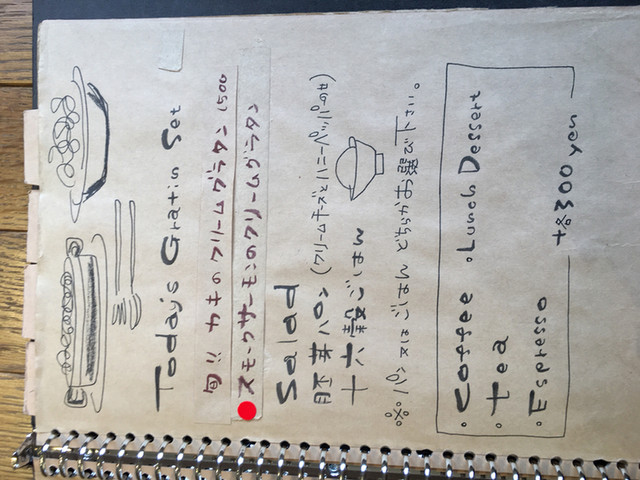 Today's Gratin Set
旬!! カキのクリームグラタン 1500
スモークサーモンのクリームグラタン
Salad
(クリームチーズとハニーペッパーの中)
十六穀ごはん
※パン又はごはん どちらかお選び下さい。
・Coffee ・Lunch Dessert
・Tea
・Espresso
+¥300yen